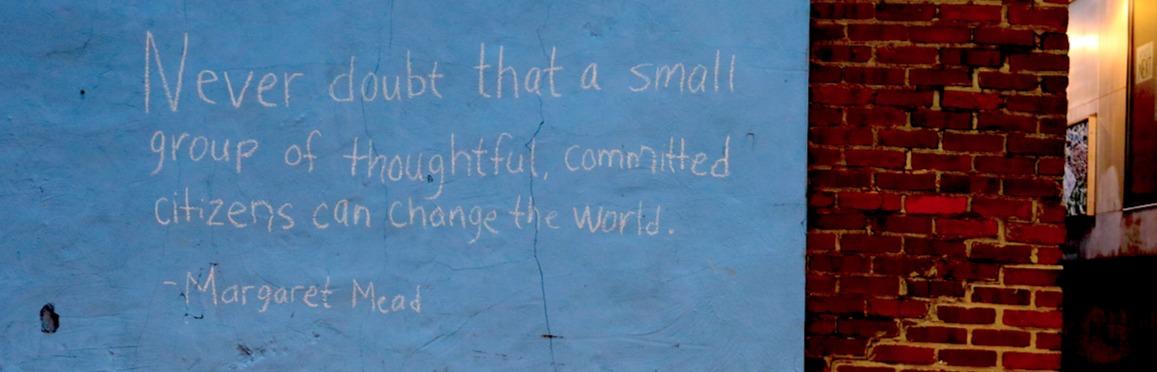 Never doubt that a small
group of thoughtful, committed
citizens can change the world.
-Margaret Mead